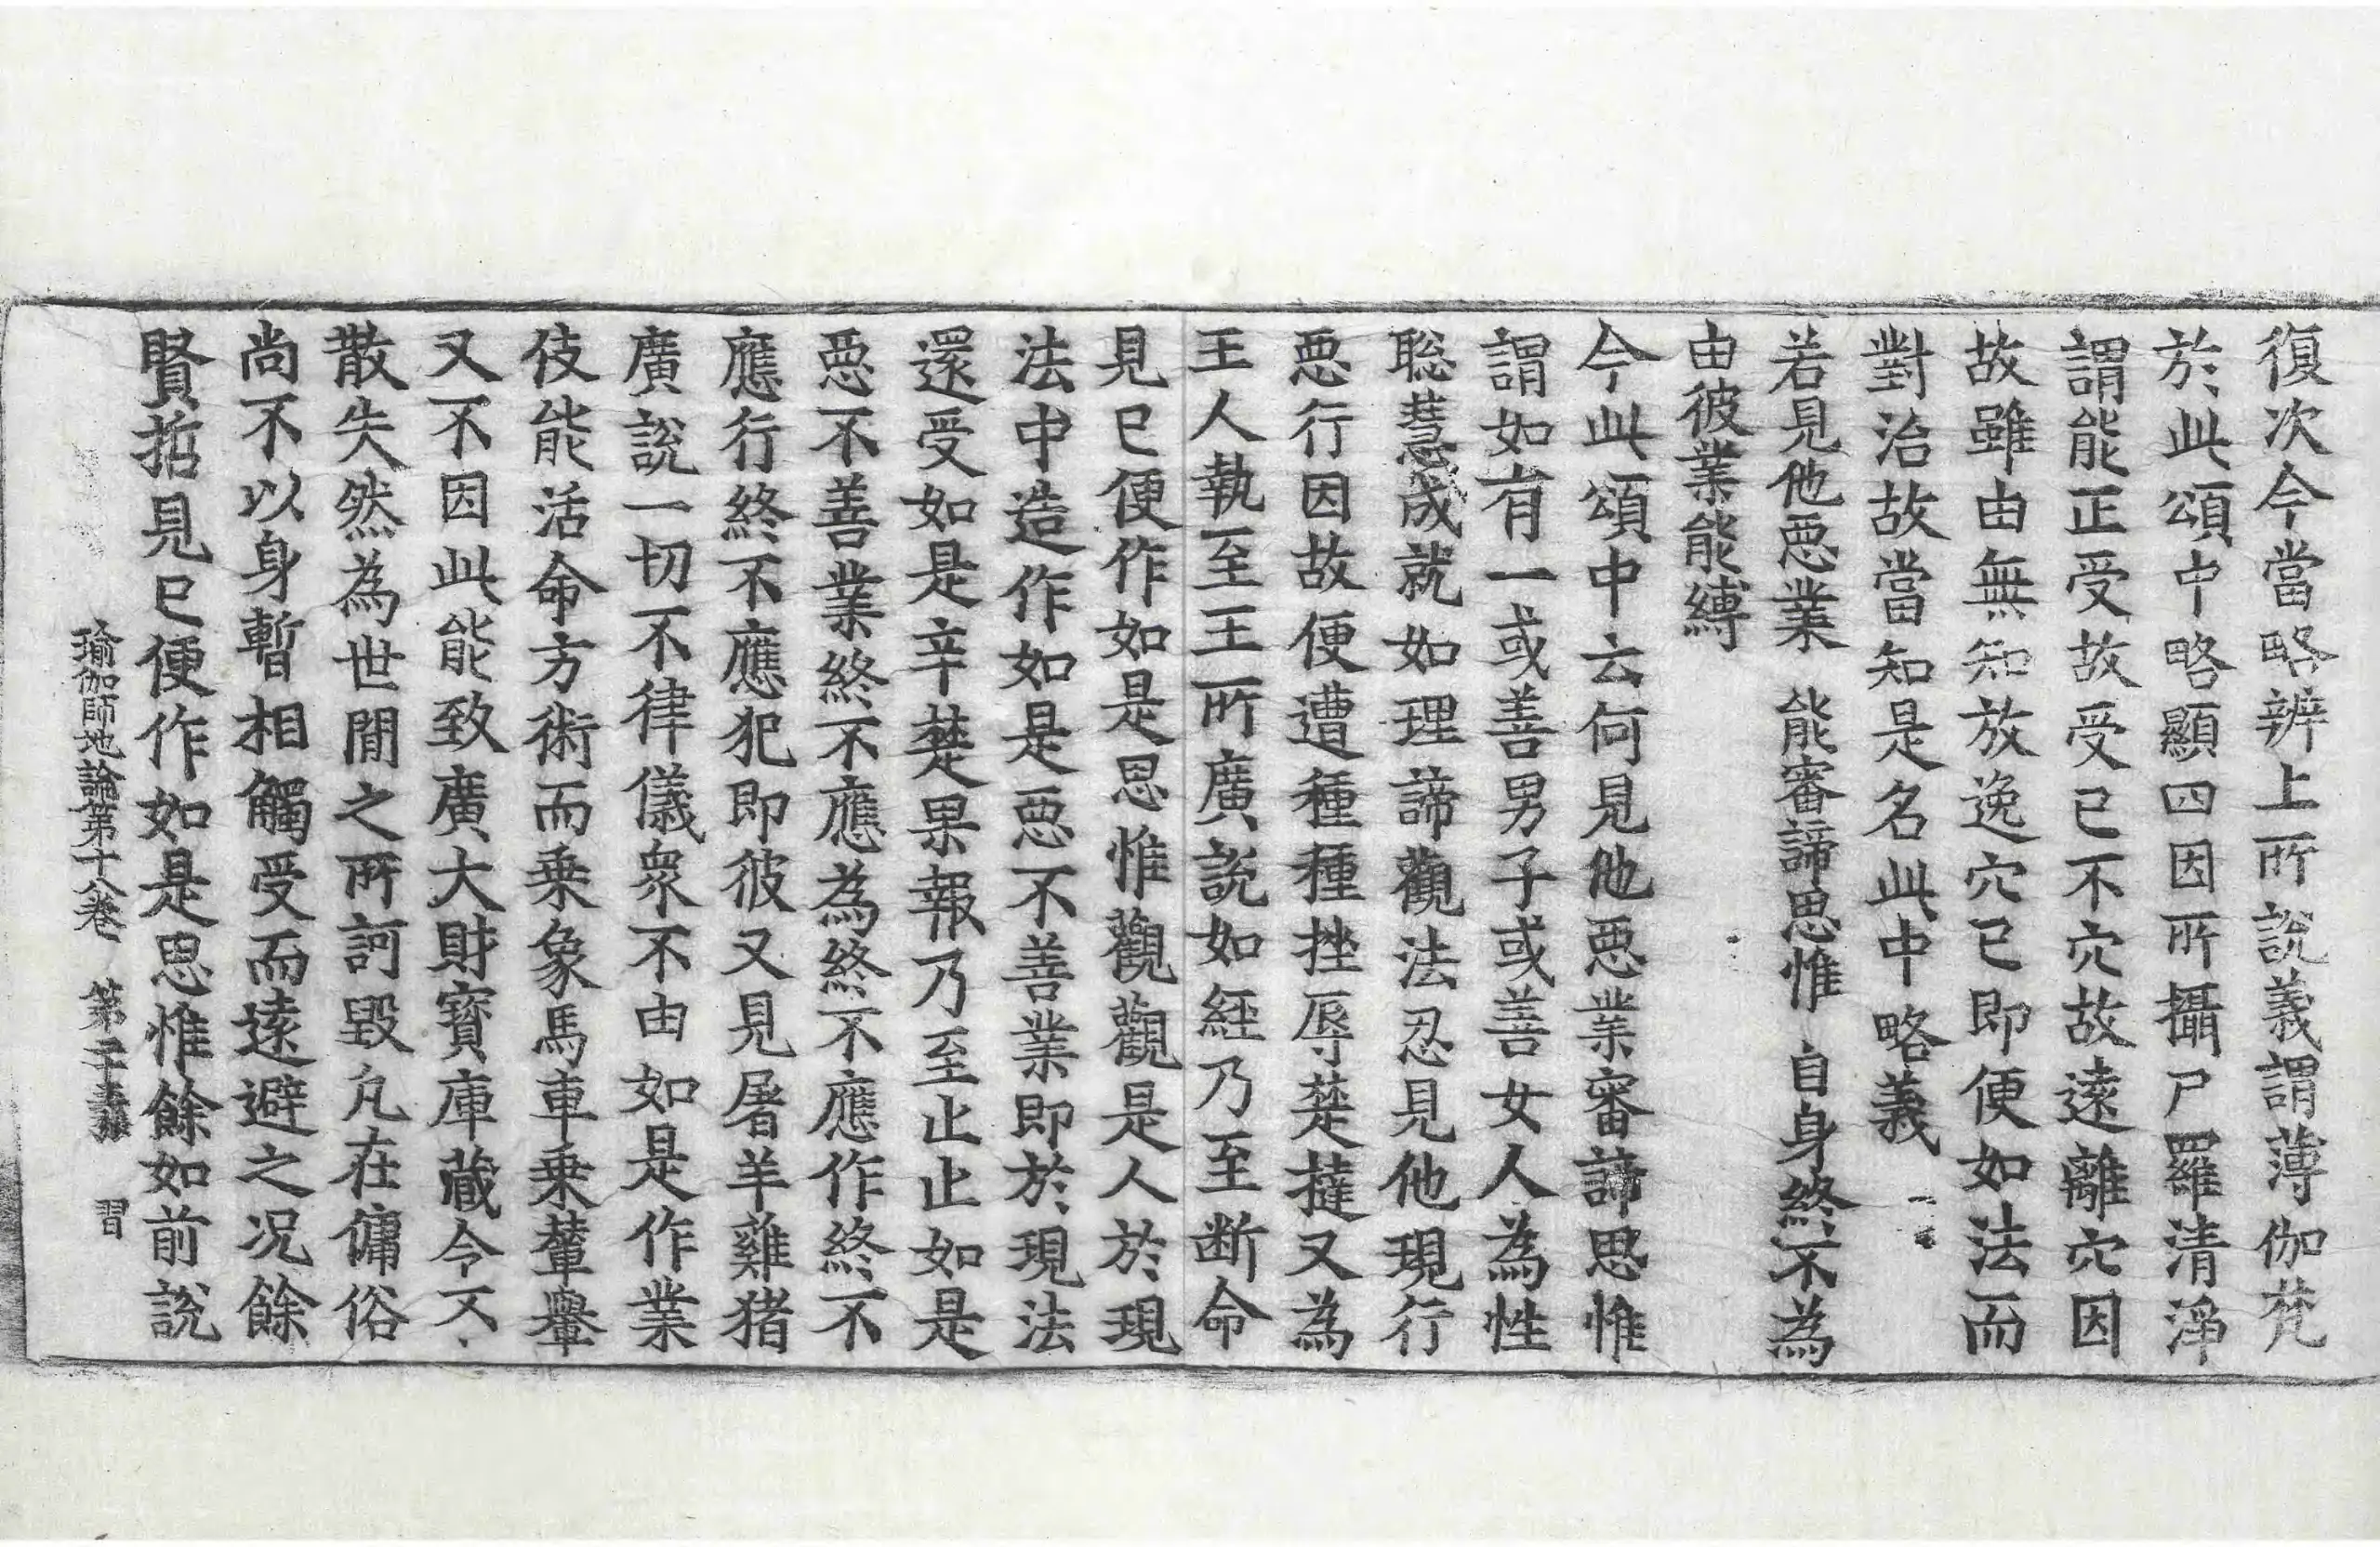 復次今當略辨上所說義謂薄伽梵
於此頌中略顯四因所攝尸羅清淨
謂能正受故受已不穴故遠離穴因
故雖由無知放逸穴已即便如法而
對治故當知是名此中略義
若見他惡業　能審諦思惟　自身終不為
由彼業能縛
今此頌中云何見他惡業審諦思惟
謂如有一或善男子或善女人為性
聡慧成就如理諦觀法忍見他現行
惡行因故便遭種種挫辱楚撻又為
王人執至王所廣說如經乃至断命
見已便作如是思惟觀觀是人於現
法中造作如是惡不善業即於現法
還受如是辛楚果報乃至止止如是
惡不善業終不應為終不應作終不
應行終不應犯即彼又見屠羊雞猪
廣說一切不律儀衆不由如是作業
伎能活命方術而乗象馬車乗輦轝
又不因此能致廣大財寳庫蔵今不
散失然為世間之所訶毀凡在傭俗
尚不以身暫相觸受而遠避之况餘
賢哲見已便作如是思惟餘如前說
瑜伽師地論第十八卷　第 習